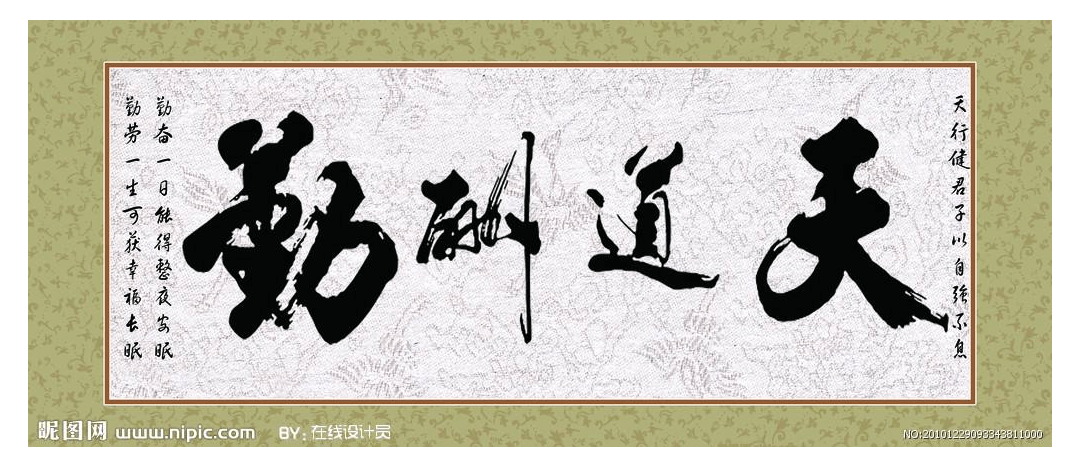 天行健君子以自强不息
天道酬勤
勤奋一日能得整夜安眠
勤劳一生可获幸福长眠
昵图网 www.nipic.com BY：在线设计员
NO:20101229093343811000